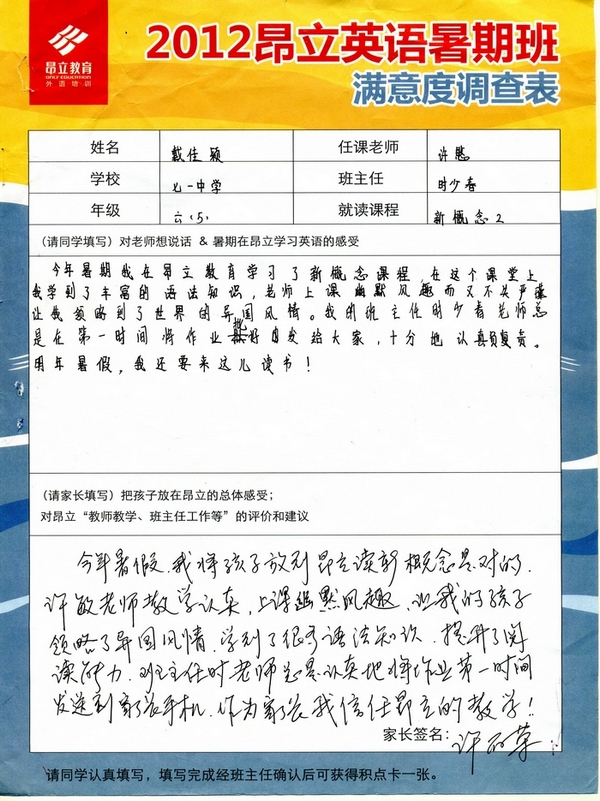 昂立教育
ONLY EDUCATION
外语培训
2012昂立英语暑期班
满意度调查表
姓名 戴佳颖 任课老师 许
学校 七一中学 班主任 时少春
年级 六(5) 就读课程 新概念2
(请同学填写)对老师想说话 & 暑期在昂立学习英语的感受
今年暑期我在昂立教育学习了新概念课程,在这个课堂上
我学到了丰富的语法知识,老师上课幽默风趣而又不失严谨
让我领略到了世界的异国风情。我的班主任时少春老师总
是在第一时间将作业批好发给大家,十分地认真负责。
明年暑假,我还要来这儿读书!
(请家长填写)把孩子放在昂立的总体感受;
对昂立“教师教学、班主任工作等”的评价和建议
今年暑假,我将孩子放到昂立读新概念是对的.
许敏老师教学认真,上课幽默风趣,让我的孩子
领略了异国风情,学到了很多语法知识.提升了阅
读能力.班主任时老师总是认真地将作业第一时间
发送到家长手机.作为家长我信任昂立的教学!
家长签名: 许
请同学认真填写,填写完成经班主任确认后可获得积点卡一张。